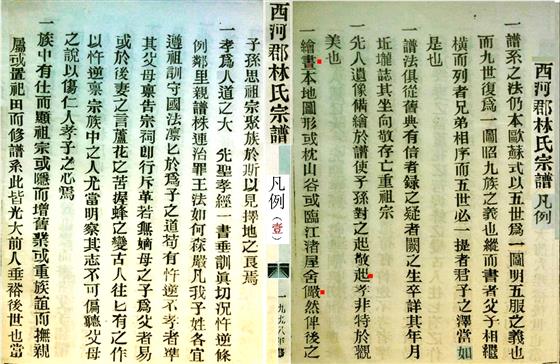 西河郡林氏宗譜 凡例
一譜系之法仍本歐蘇式以五世爲一圖明五服之義也
而九世復爲一圖昭九族之義也縱而書者父子相繼
橫而列者兄弟相序而五世必一提者君子之澤當如
是也
一譜法俱從舊典有信者錄之疑者闕之生卒詳其年月
近壠誌其坐向敬存亡重祖宗
一先人遺像備繪於譜使子孫對之起敬起孝非特於觀
美也
一繪畫本地圖形或枕山谷或臨江渚屋舍儼然俾後之
西河郡林氏宗譜
凡例
(壹)
一九九八年
子孫思祖宗聚族於斯以見擇地之艮焉
一孝爲人道之大 先聖孝經一書垂訓眞切況忤逆條
例鄰里親譜株連治罪王法如何森嚴凡我子姓各宜
遵祖訓守國法凜匕於爲子之道苟有忤逆不孝者準
其父母稟告宗祠卽行斥革若無嫡母之子爲父者易
或於後妻之言蘆花之苦握蜂之變古人往匕有之作
以忤逆稟宗族中之人尤當明察其志不可偏聽父母
之說以傷仁人孝子之心焉
一族中有仕而顯祖宗或隱而增舊業或重族誼而撫親
屬或置祀田而修譜系此皆光大前人垂裕後世也當